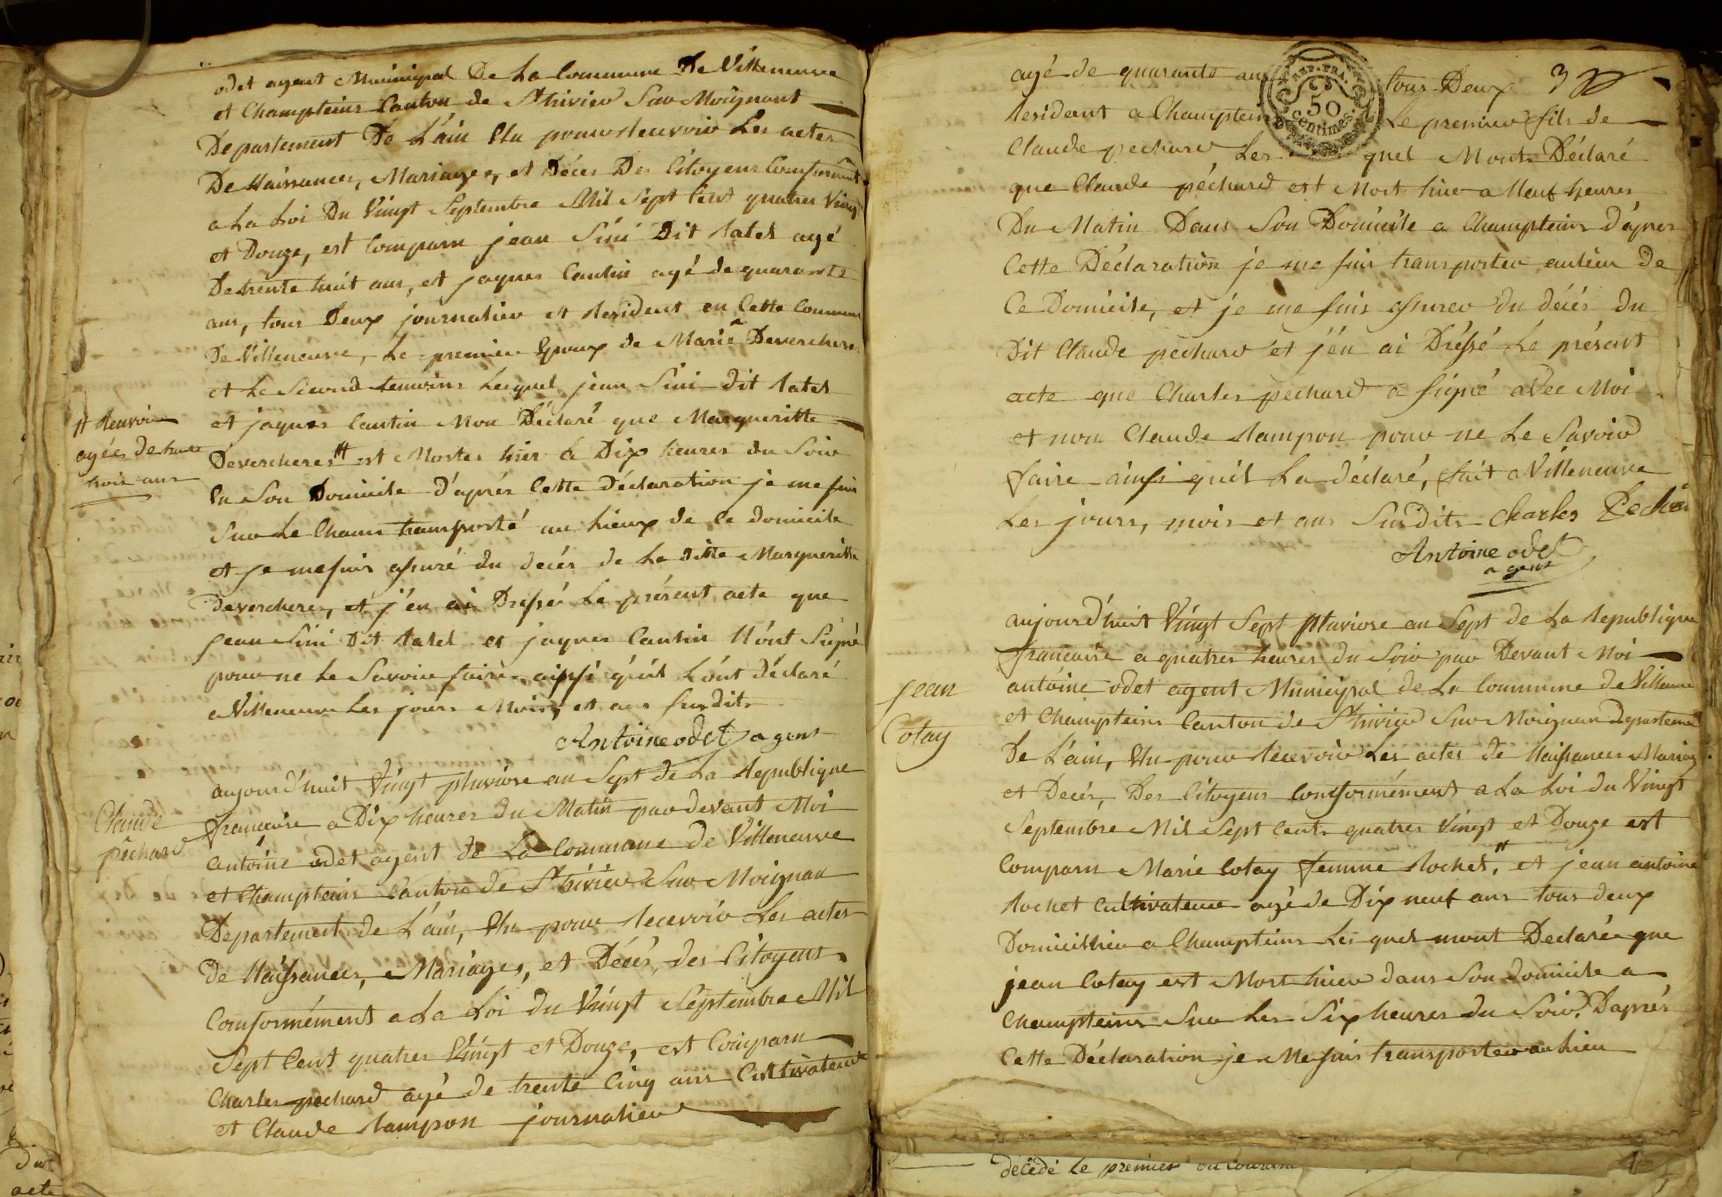 odet agent Municipal De La Commune De Villeneuve
et Champteins Canton de St trivier Sur Moignant
Departement De L'ain Elu pour Recevoir Les actes
De Naissances, Mariages, et Décès Des Citoyens Conformément
a La Loi Du Vingt Septembre Mil Sept Cent quatres Vingt
et Douze, est Comparu jean Sini Dit
De trente huit ans, et jaques Cantin agé de quarante
ans, tous Deux journalier et Resident en Cette Commune
De Villeneuve, Le premier Epoux de Marie Devercheres
et Le Second temoins Lesquel jean Sini dit
et jaques Cantin Mon Déclaré que Margueritte
Devercheres # est Mortes hier a Dix heures du Soir
# Renvoi
agées de trente
trois ans
En Son Domicile D'après Cette Déclaration je me suis
Sur Le Chams transporté au Lieux de Ce domicile
et je me suis assuré du decès de La ditte Margueritte
Devercheres, et j'en ai Dressé Le présent acte que
jean Sini Dit et jaques Cantin N'ont Signé
pour ne Le Savoir faire ainsi qu'il L'ont déclaré
a Villeneuve Les jours Mois et ans Susdits
Antoine odet agent
Claude
péchard
aujourd'huit Vingt pluviôse an Sept de La Republique
française a Dix heures Du Matin par devant Moi
antoine odet agent de La Commune de Villeneuve
et Champteins Canton de St trivier Sur Moignan
Departement de L'ain, Elu pour Recevoir Les actes
de Naissances, Mariages, et Décès, des Citoyens
Conformément a La Loi du Vingt Septembre Mil
Sept Cent quatres Vingt et Douze, est Comparu
Charles pechard agé de trente Cinq ans Cultivateur
et Claude Rampon journalier
agé de quarante ans tous Deux
REP. FRA.
50
Centimes
Resident a Champteins Le premier fils de
Claude pechard Les quel Mont Déclaré
que Claude péchard est Mort hier a Neuf heures
Du Matin Dans Son Domicile a Champteins D'après
Cette Déclaration je me suis transporter au lieu de
Ce Domicile, et je me suis assurer du décès du
Dit Claude pechard et j'en ai Dréssé Le présent
acte que Charles pechard a Signé avec Moi
et non Claude Rampon pour ne Le Savoir
faire ainsi qu'il La déclaré, fait a Villeneuve
Les jours, mois et ans Susdits Charles Pechar
Antoine odet
agent
Jean
Cotay
aujourd'huit Vingt Sept pluviose an Sept de La Republique
française a quatres heures du Soir par Devant Moi
antoine odet agent Municipal de La Commune de Villeneuve
et Champteins Canton de St trivier Sur Moignan departement
De L'ain, Elu pour Recevoir Les actes de Naissances Mariag
et Decès, Des Citoyens Conformément a La Loi du Vingt
Septembre Mil Sept Cent quatres Vingt et Douze est
Comparu Marie Cotay femme Rochet, # et jean antoine
Rochet Cultivateur agé de Dix neuf ans tous deux
Domicillier a Champteins Les quel mont Declarée que
jean Cotay est Mort hier dans Son domicile a
Champteins Sur Les Six heures du Soir. D'après
Cette Déclaration je Me suis transporter au Lieu
décédé Le premier du Courant